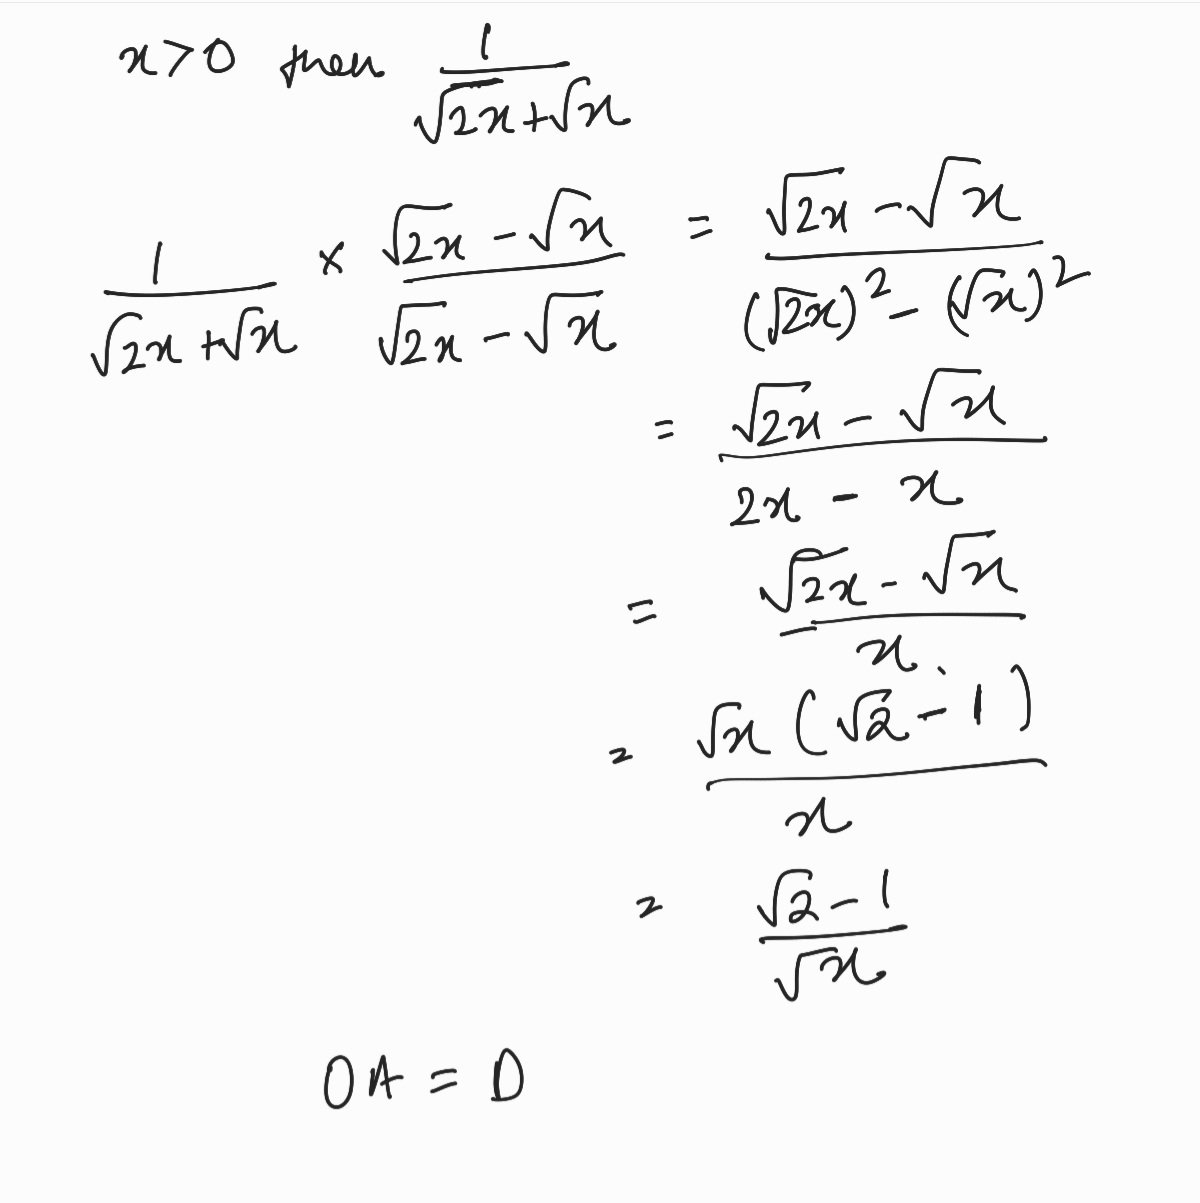 x>0 then 1/(√2x+√x)
1/(√2x+√x) × (√2x-√x)/(√2x-√x) = (√2x-√x)/((√2x)²-(√x)²)
= (√2x-√x)/(2x-x)
= (√2x-√x)/x
= √x(√2-1)/x
= (√2-1)/√x
OA = D